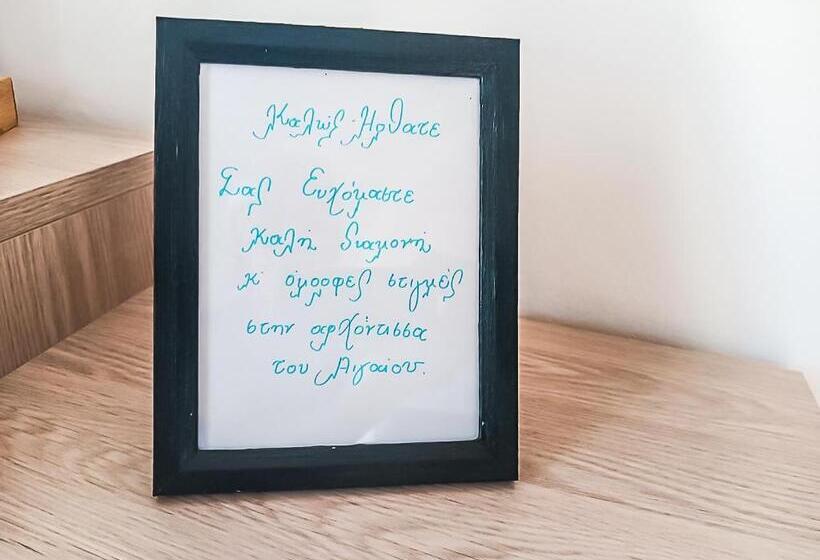 Καλώς Ήρθατε
Σας Ευχόμαστε
καλή διαμονή
κ' όμορφες στιγμές
στην αρχόντισσα
του Αιγαίου.